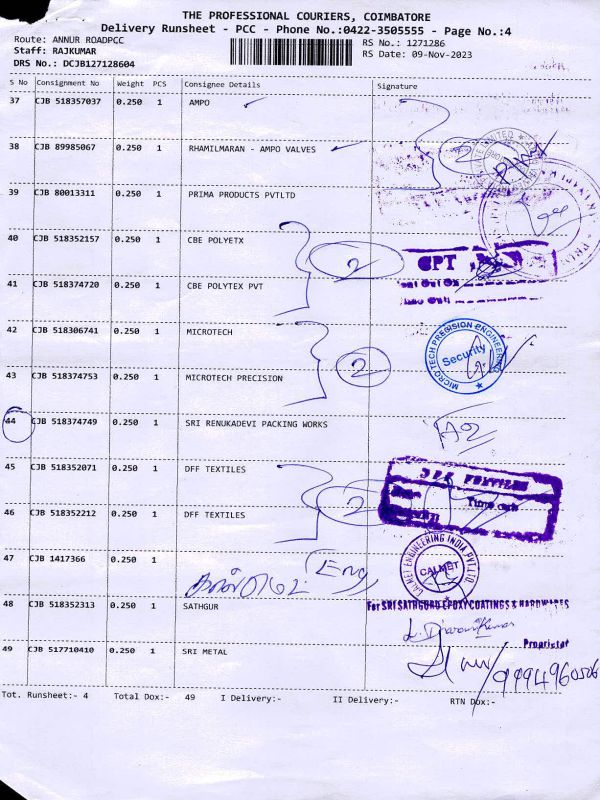 THE PROFESSIONAL COURIERS, COIMBATORE
Delivery Runsheet - PCC - Phone No.:0422-3505555 - Page No.:4
Route: ANNUR ROADPCC
RS No.: 1271286
Staff: RAJKUMAR
RS Date: 09-Nov-2023
DRS No.: DCJB127128604
S No Consignment No Weight PCS Consignee Details Signature
37 CJB 518357037 0.250 1 AMPO
38 CJB 89985067 0.250 1 RHAMILMARAN - AMPO VALVES 2
39 CJB 80013311 0.250 1 PRIMA PRODUCTS PVTLTD
40 CJB 518352157 0.250 1 CBE POLYETX
2 CPT
41 CJB 518374720 0.250 1 CBE POLYTEX PVT
42 CJB 518306741 0.250 1 MICROTECH
MICROTECH PRECISION ENGINEERING
Security
2
43 CJB 518374753 0.250 1 MICROTECH PRECISION
44 CJB 518374749 0.250 1 SRI RENUKADEVI PACKING WORKS
45 CJB 518352071 0.250 1 DFF TEXTILES
2 Time out
46 CJB 518352212 0.250 1 DFF TEXTILES
CALMET ENGINEERING INDIA PVT LTD
CALMET
47 CJB 1417366 0.250 1
(Eng
48 CJB 518352313 0.250 1 SATHGUR
For SRI SATHGURU EPOXY COATINGS & HARDWARES
Proprietor
49 CJB 517710410 0.250 1 SRI METAL
Tot. Runsheet:- 4 Total Dox:- 49 I Delivery:- II Delivery:- RTN Dox:-